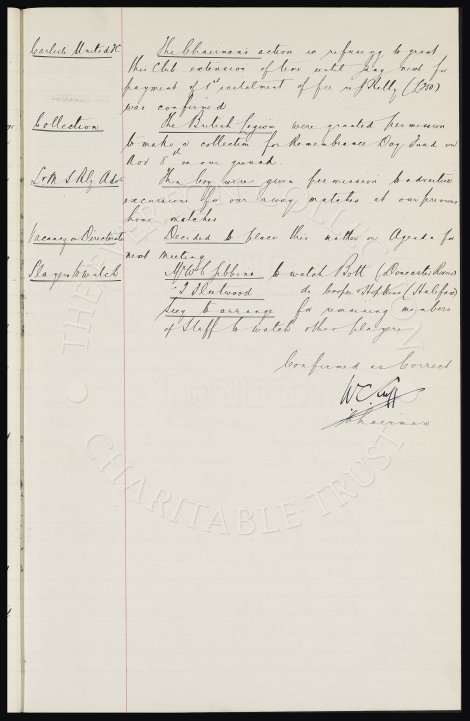 Carlisle United FC The Chairman's action in refusing to grant
this Club extension of time until Jany next for
payment of 1st instalment of fee re J Kelly (£750)
was confirmed
Collection The British Legion were granted permission
to make a collection for Remembrance Day Fund on
Nov 8th on our ground.
L & M S Rly Advt This Coy were given permission to advertise
excursions for our away matches at our previous
home matches
Vacancy on Directorate Decided to place this matter on Agenda for
next meeting.
Players to watch Mr W C Gibbins to watch Bott (Doncaster Rovers)
" T Fleetwood do Cooper & Hopkins (Halifax)
Secy to arrange for remaining members
of Staff to watch other players
Confirmed as Correct
W C Cuff
Chairman
THE EVERTON COLLECTION
CHARITABLE TRUST